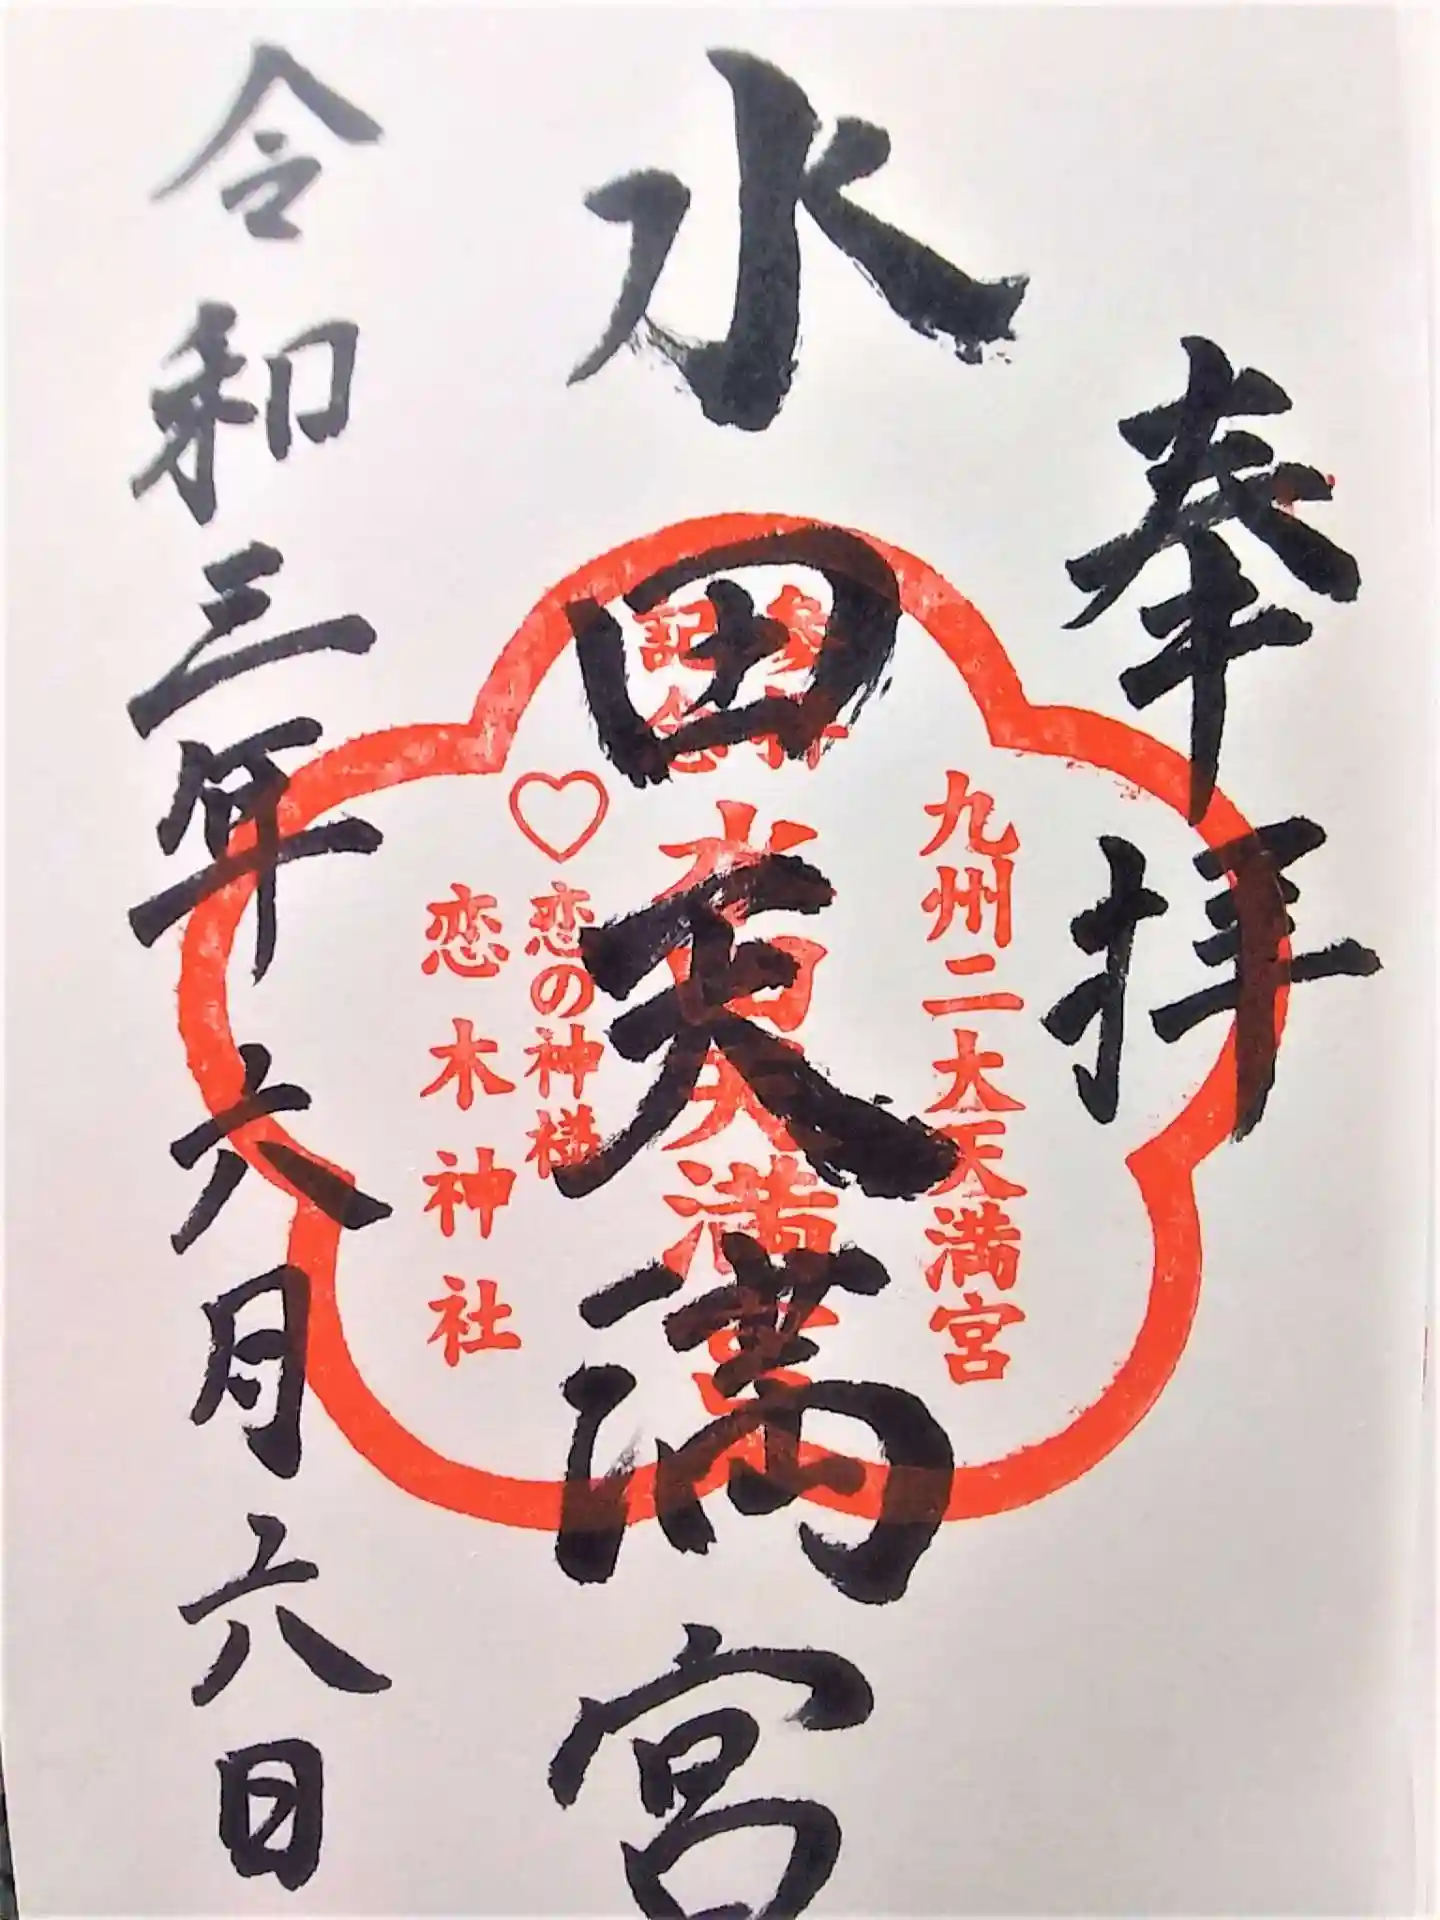 奉拝
九州二大天満宮
水田天満宮
参拝
記念
水田天満宮
♡恋の神様
恋木神社
令和三年六月六日